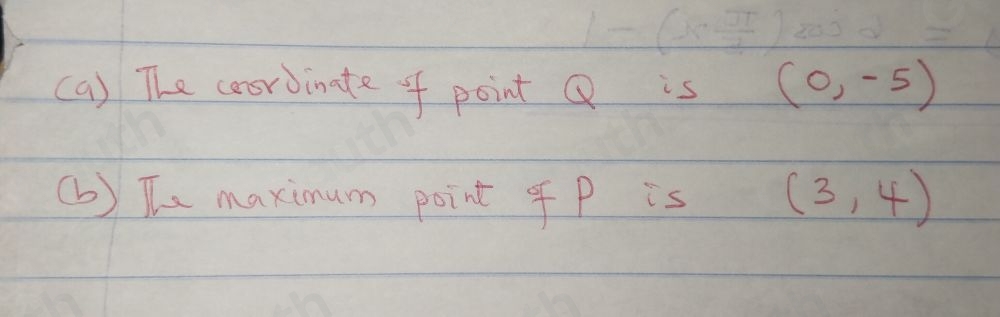 (a) The coordinate of point Q is (0, -5)
(b) The maximum point of P is (3, 4)